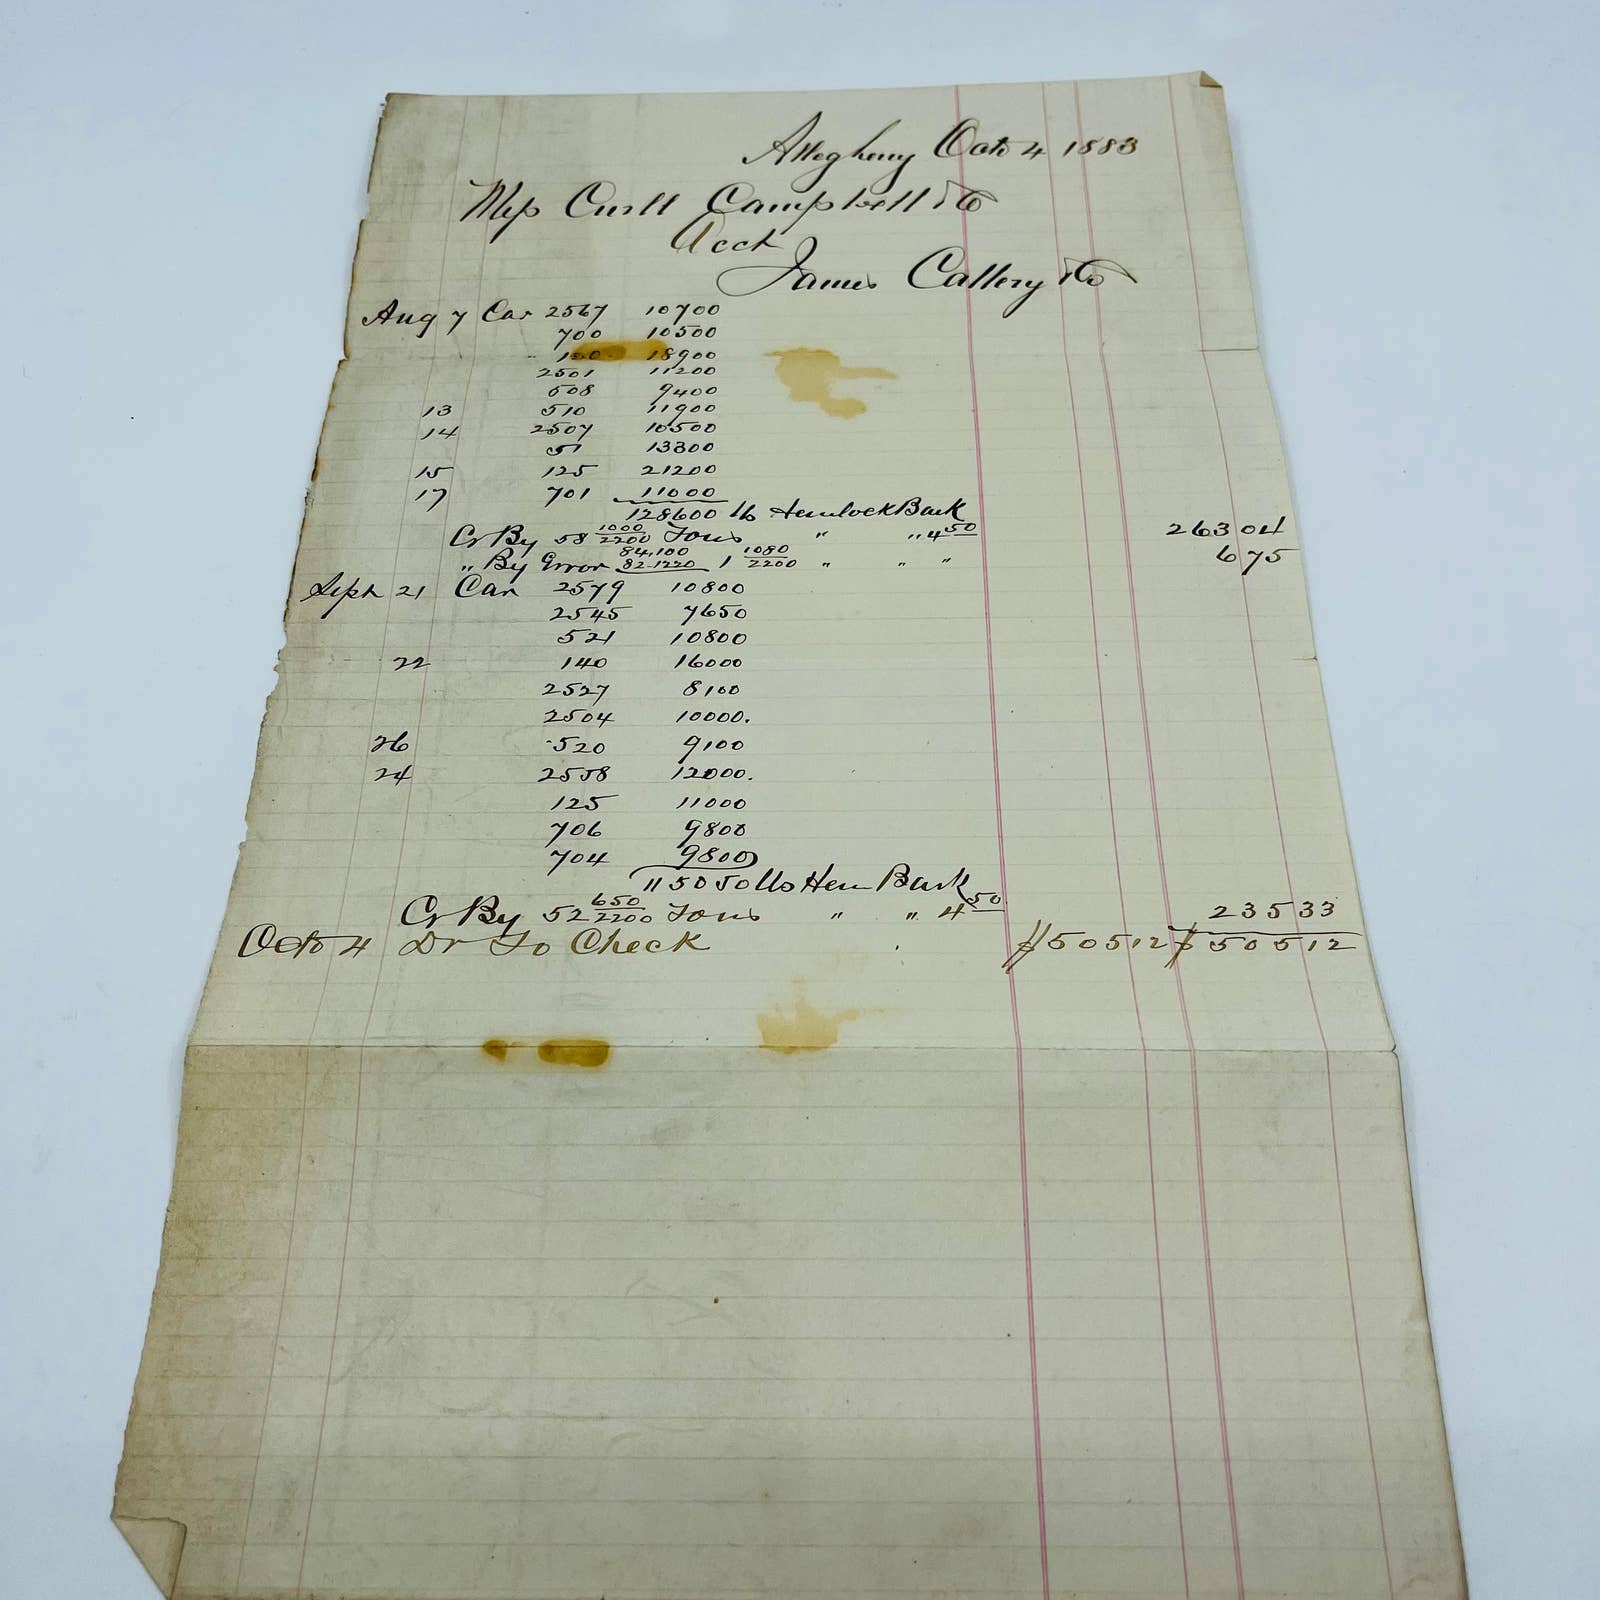 Allegheny Octo 4 1883
Mess Curll Campbell & Co
Acct
James Callery & Co
Aug 7 Car 2567 10700
700 10500
100 18900
2501 11200
508 9400
13 510 11900
14 2507 10500
51 13300
15 125 21200
17 701 11000
128600 lb Hemlock Bark
Cr By 58 1000/2200 Tons " " 4 50 263 04
" By Error 84,100/82-1220 1 1080/2200 " " " 6 75
Sept 21 Car 2579 10800
2545 7650
521 10800
22 140 16000
2527 8100
2504 10000.
26 520 9100
24 2558 12000.
125 11000
706 9800
704 9800
115050 lbs Hem Bark
Cr By 52 650/2200 Tons " " 4 50 235 33
Octo 4 Dr To Check $505 12 $505 12